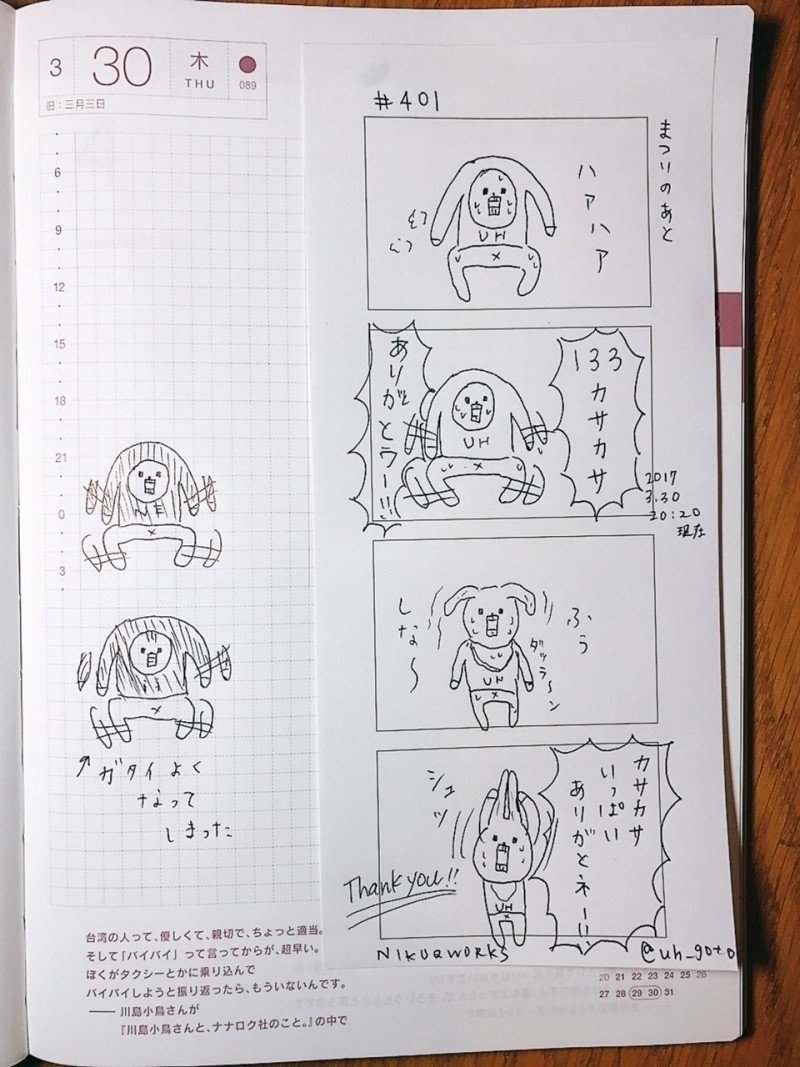 3
30
木
THU
089
旧：三月三日
6
9
12
15
18
21
0
3
NE
↑ガタイよく
なって
しまった
台湾の人って、優しくて、親切で、ちょっと適当。
そして「バイバイ」って言ってからが、超早い。
ぼくがタクシーとかに乗り込んで
バイバイしようと振り返ったら、もういないんです。
―― 川島小鳥さんが
『川島小鳥さんと、ナナロク社のこと。』の中で
#401
まつりのあと
ハァハァ
UH
133
カサカサ
ありがとうー!!
UH
2017
3.30
20:20
現在
ふぅ
ダッラ〜ン
しな〜
UH
カサカサ
いっぱい
ありがとネー!!
シュッ
UH
Thank you!!
NIKUQWORKS
@uh_goto
20 21 22 23 24 25 26
27 28 29 30 31